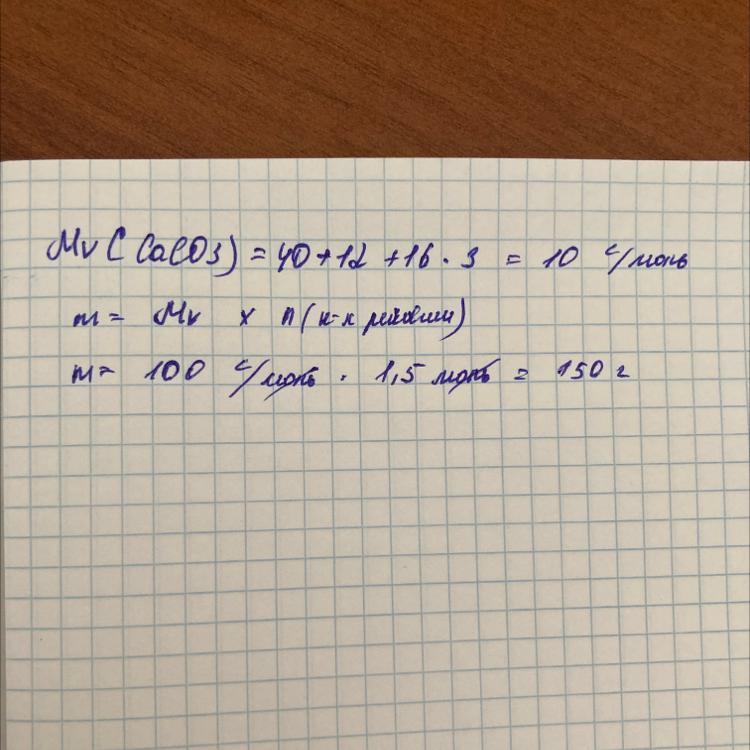 Mr(CaCO3) = 40+12+16·3 = 10 г/моль
m = Mr x n (
m = 100 г/моль · 1,5 моль = 150 г